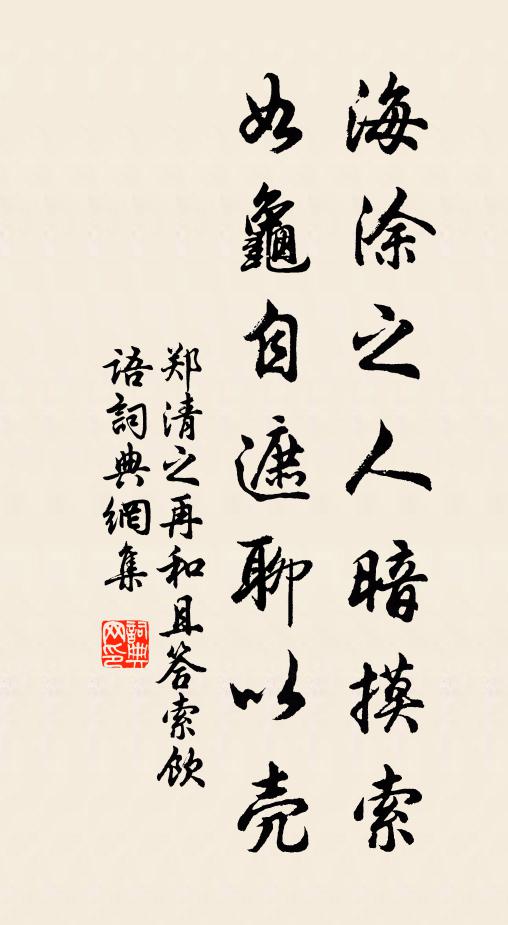 海涂之人暗摸索
如龜自遮聊以壳
郑清之再和且答索饮
语詞典網集
詞典网印